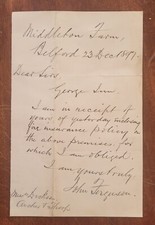 Middleton Farm,
Belford 23 Dec 1897.
Dear Sirs,
George Inn.
I am in receipt of
yours of yesterday inclosing
fire insurance policy on
the above premises for
which I am obliged.
I am yours truly
John Ferguson.
Messrs